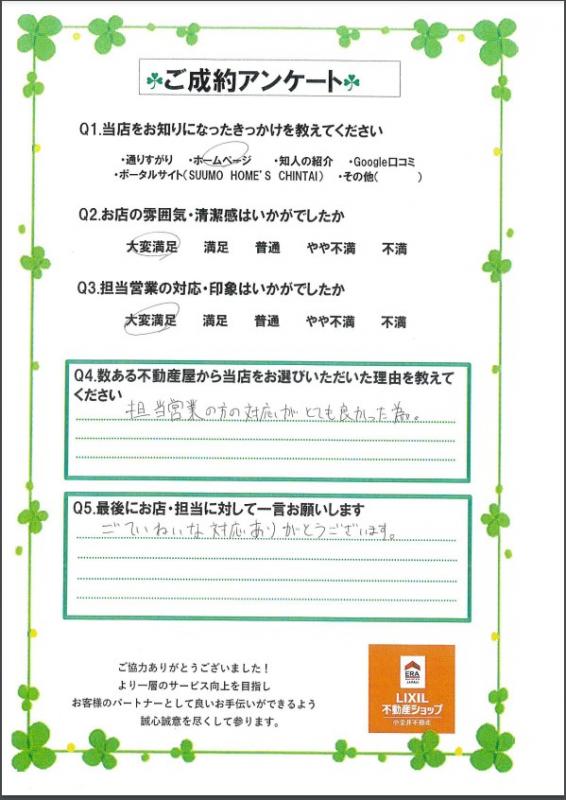 ご成約アンケート
Q1.当店をお知りになったきっかけを教えてください
・通りすがり ・ホームページ ・知人の紹介 ・Google口コミ
・ポータルサイト(SUUMO HOME'S CHINTAI) ・その他( )
Q2.お店の雰囲気・清潔感はいかがでしたか
大変満足 満足 普通 やや不満 不満
Q3.担当営業の対応・印象はいかがでしたか
大変満足 満足 普通 やや不満 不満
Q4.数ある不動産屋から当店をお選びいただいた理由を教えて
ください
担当営業の方の対応がとても良かった為。
Q5.最後にお店・担当に対して一言お願いします
ごていねいな対応ありがとうございます。
ご協力ありがとうございました！
より一層のサービス向上を目指し
お客様のパートナーとして良いお手伝いができるよう
誠心誠意を尽くして参ります。
ERA
JAPAN
LIXIL
不動産ショップ
小金井不動産